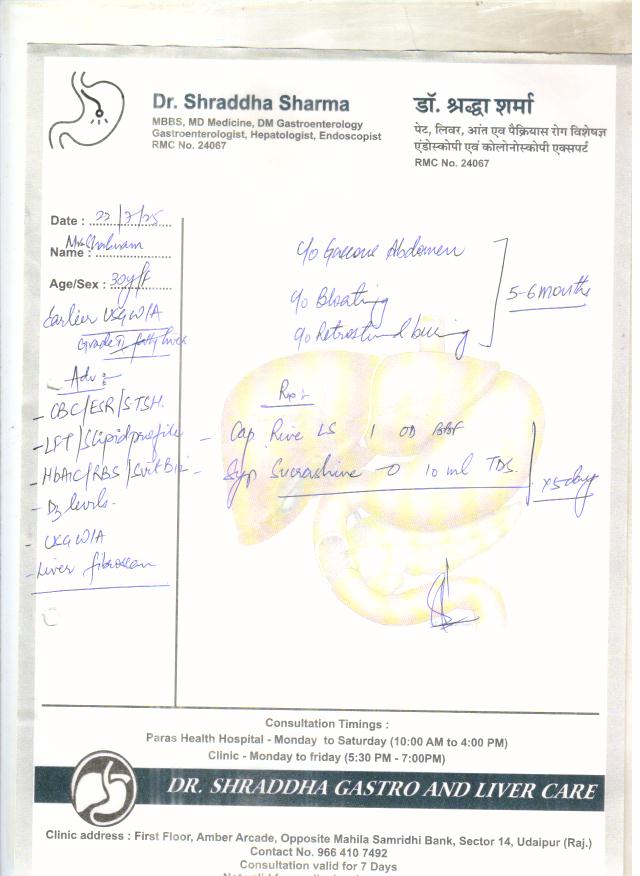 Dr. Shraddha Sharma
MBBS, MD Medicine, DM Gastroenterology
Gastroenterologist, Hepatologist, Endoscopist
RMC No. 24067
डॉ. श्रद्धा शर्मा
पेट, लिवर, आंत एव पैक्रियास रोग विशेषज्ञ
एंडोस्कोपी एवं कोलोनोस्कोपी एक्सपर्ट
RMC No. 24067
Date : 22/7/25
Name : Mrs
Age/Sex : 30y/F
Earlier USG W/A
Grade II fatty liver
Adv :
- CBC/ESR/STSH.
- LFT/Slipid profile
- HbA1C/RBS/SvitB12
- D3 levels.
- USG W/A
- Liver fibroscan
c/o Abdomen
c/o Bloating
c/o Retrosternal burning
5-6 months
Rx :-
- Cap Rive LS 1 OD BBF
- Syp Sucrashine O 10 ml TDS.
x 5 days
Consultation Timings :
Paras Health Hospital - Monday to Saturday (10:00 AM to 4:00 PM)
Clinic - Monday to friday (5:30 PM - 7:00PM)
DR. SHRADDHA GASTRO AND LIVER CARE
Clinic address : First Floor, Amber Arcade, Opposite Mahila Samridhi Bank, Sector 14, Udaipur (Raj.)
Contact No. 966 410 7492
Consultation valid for 7 Days